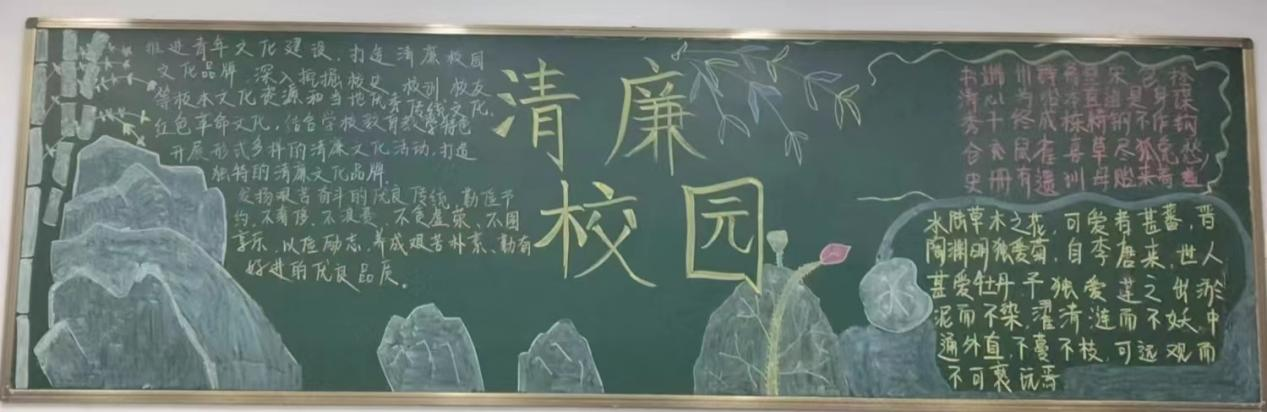 推进青年文化建设，打造清廉校园
文化品牌，深入挖掘校史、校训、校友
等校本文化资源和当地优秀传统文化、
红色革命文化，结合学校教育教学特色
开展形式多样的清廉文化活动，打造
独特的清廉文化品牌。
发扬艰苦奋斗的优良传统，勤俭节
约，不奢侈、不浪费、不贪虚荣、不图
享乐，以俭励志，养成艰苦朴素、勤奋
好进的优良品质。
清廉
校园
书端州郡斋壁 宋 包拯
清心为治本直道是身谋
秀干终成栋精钢不作钩
仓充鼠雀喜草尽狐兔愁
史册有遗训毋贻来者羞
水陆草木之花，可爱者甚蕃，晋
陶渊明独爱菊，自李唐来，世人
甚爱牡丹 予独爱莲之出淤
泥而不染，濯清涟而不妖，中
通外直，不蔓不枝，可远观而
不可亵玩焉